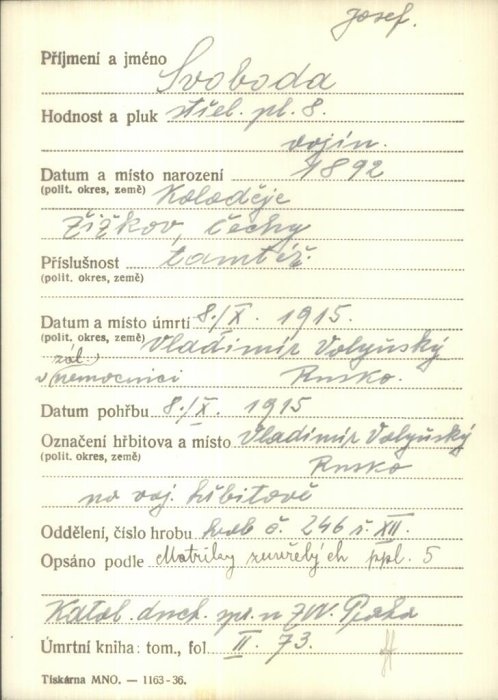 Josef.
Příjmení a jméno Svoboda
Hodnost a pluk střel. pl. 8.
vojín.
Datum a místo narození 1892
(polit. okres, země) Koloděje
Žižkov, Čechy
Příslušnost tamtéž.
(polit. okres, země)
Datum a místo úmrtí 8./X. 1915.
(polit. okres, země) Vladimír Volyňský
zál.
v nemocnici Rusko.
Datum pohřbu 8./X. 1915
Označení hřbitova a místo Vladimír Volyňský
(polit. okres, země)
Rusko
na voj. hřbitově
Oddělení, číslo hrobu hrob č. 246 ř. XII.
Opsáno podle Matriky zemřelých ppl. 5
Katol. duch. spr. u ZVV. Praha
Úmrtní kniha: tom., fol. II. 73.
Tiskárna MNO. — 1163-36.